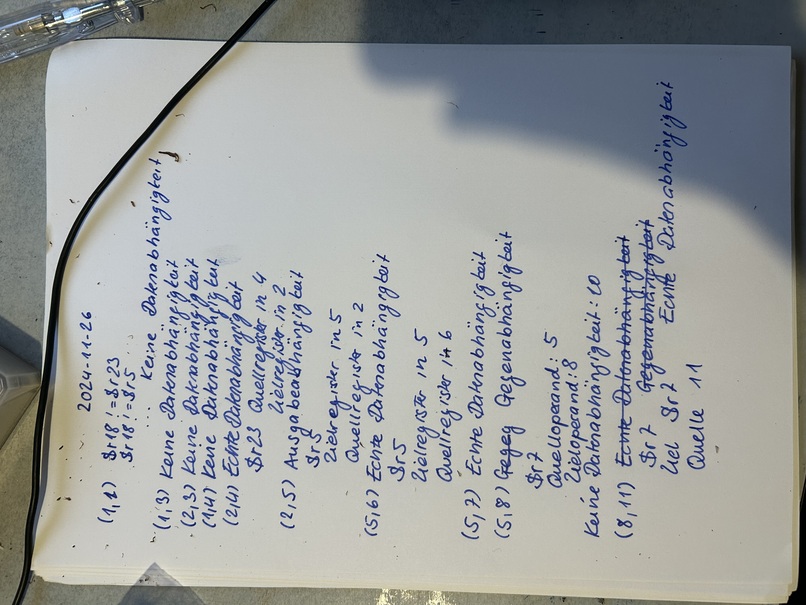 2024-11-26
(1,1) $r18 != $r23
$r18 != $r5
... Keine Datenabhängigkeit,
(1,3) Keine Datenabhängigkeit
(2,3) Keine Datenabhängigkeit
(1,4) Keine Datenabhängigkeit
(2,4) Echte Datenabhängigkeit
$r23 Quellregister in 4
Zielregister in 2
(2,5) Ausgabeabhängigkeit
$r5
Zielregister in 5
Quellregister in 2
(5,6) Echte Datenabhängigkeit
$r5
Zielregister in 5
Quellregister in 6
(5,7) Echte Datenabhängigkeit
(5,8) Gegeg Gegenabhängigkeit
$r7
Quelloperand: 5
Zieloperand: 8
Keine Datenabhängigkeit: 10
(8,11) Echte Datenabhängigkeit
$r7 Gegenabhängigkeit
Ziel $r7 Echte Datenabhängigkeit
Quelle 11